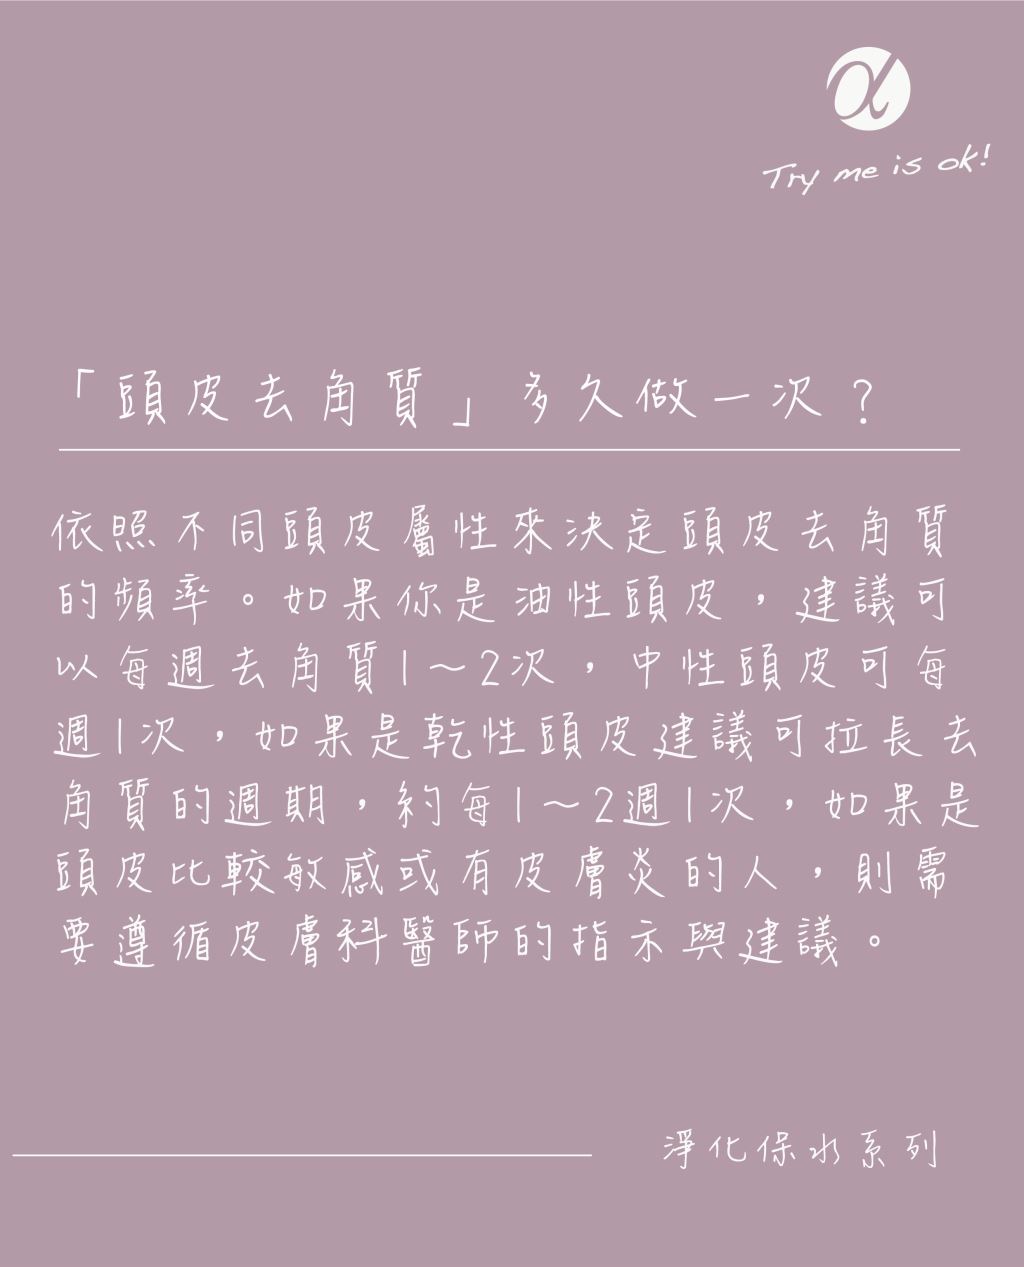 α
Try me is ok!
「頭皮去角質」多久做一次?
依照不同頭皮屬性來決定頭皮去角質
的頻率。如果你是油性頭皮,建議可
以每週去角質1~2次,中性頭皮可每
週1次,如果是乾性頭皮建議可拉長去
角質的週期,約每1~2週1次,如果是
頭皮比較敏感或有皮膚炎的人,則需
要遵循皮膚科醫師的指示與建議。
淨化保水系列